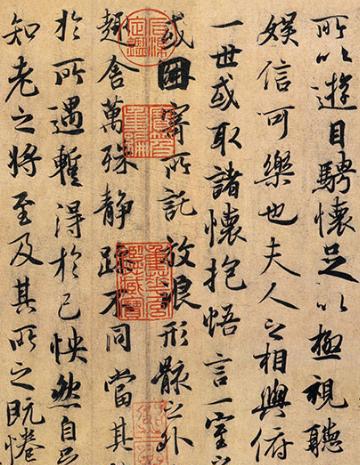 所以遊目騁懷足以極視聽
娛信可樂也夫人之相與俯
一世或取諸懷抱悟言一室之
或因寄所託放浪形骸之外
趣舍萬殊靜躁不同當其
於所遇蹔得於己怏然自足
知老之將至及其所之既惓